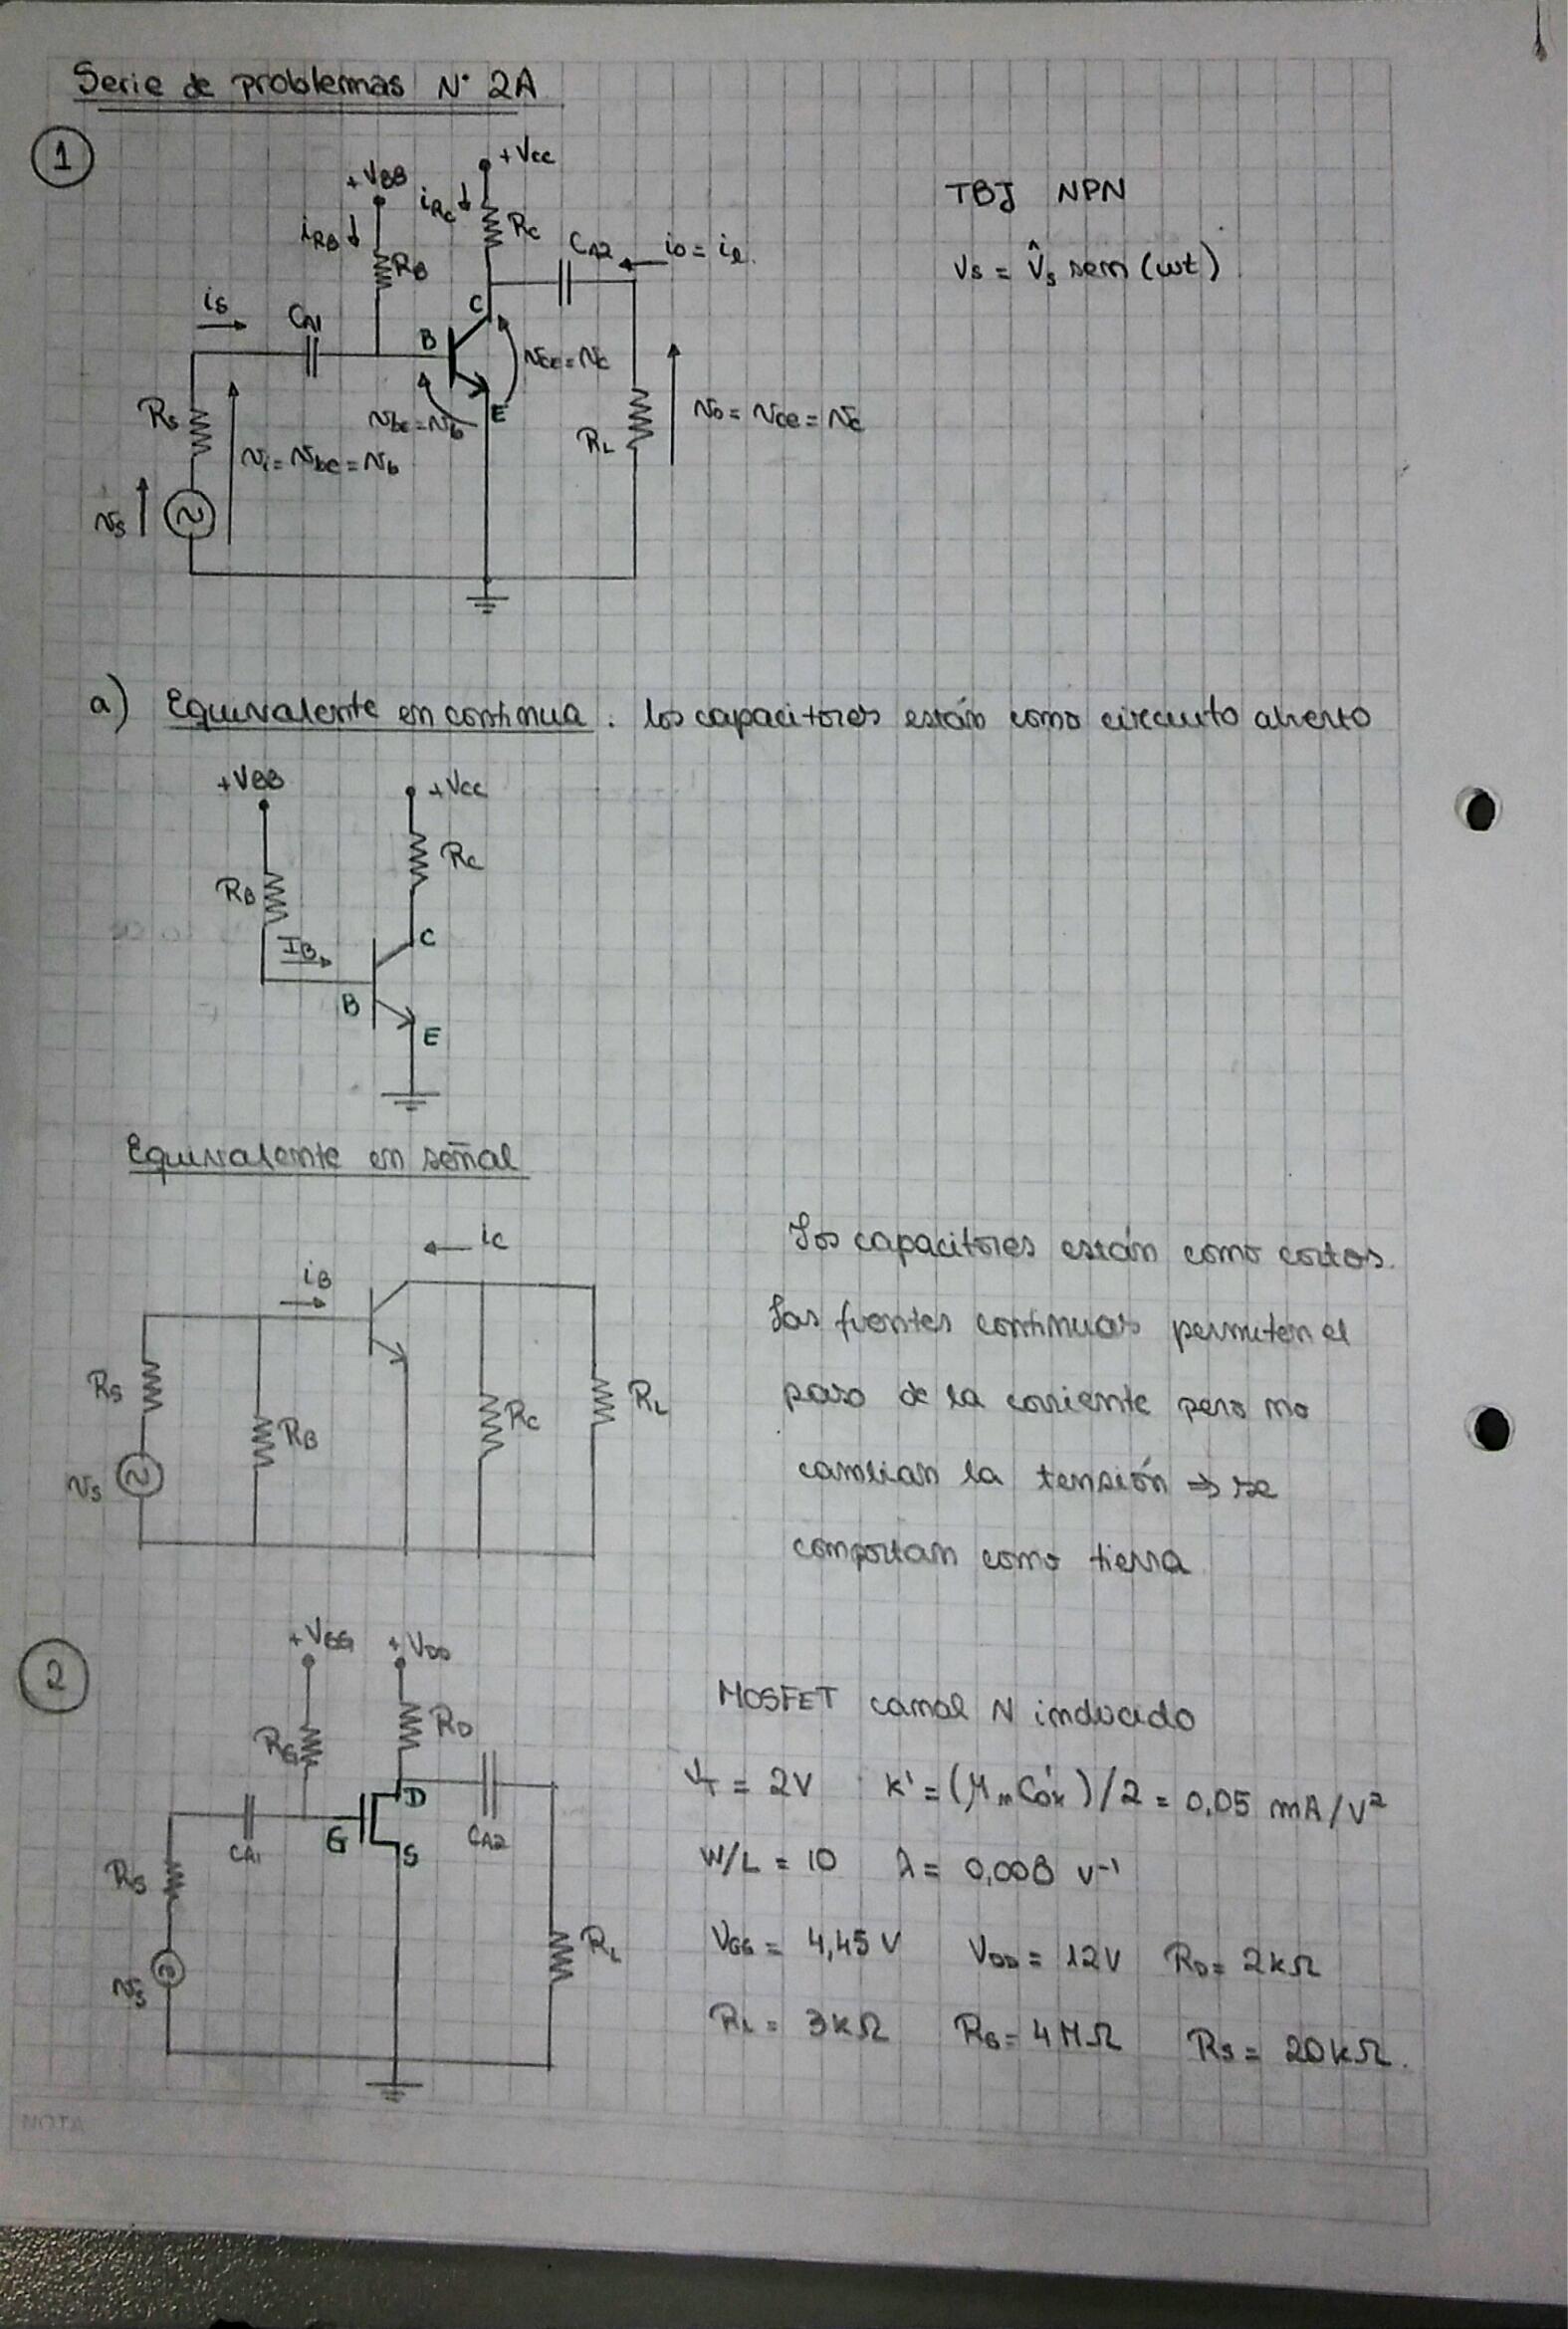 Serie de problemas N° 2A
1
+VBB
+Vcc
iRB
iRc
RB
Rc
CA2
io = il
TBJ NPN
Vs = V̂s sen (ωt)
is
CA1
B
C
E
vce = vc
vbe = vb
Rs
vi = vbe = vb
vs
RL
vo = vce = vc
a) Equivalente en continua. los capacitores están como circuito abierto
+VBB
+Vcc
RB
Rc
IB
B
C
E
Equivalente en señal
ic
iB
Rs
RB
Rc
RL
vs
Los capacitores están como cortos.
Las fuentes continuas permiten el
paso de la corriente pero no
cambian la tensión ⇒ se
comportan como tierra
2
+VGG
+VDD
RG
RD
CA1
CA2
G
D
S
Rs
vs
RL
MOSFET canal N inducido
VT = 2V k' = (μn C'ox)/2 = 0,05 mA/V²
W/L = 10 λ = 0,008 V⁻¹
VGG = 4,45 V VDD = 12V RD = 2kΩ
RL = 3kΩ RG = 4MΩ Rs = 20kΩ.
NOTA